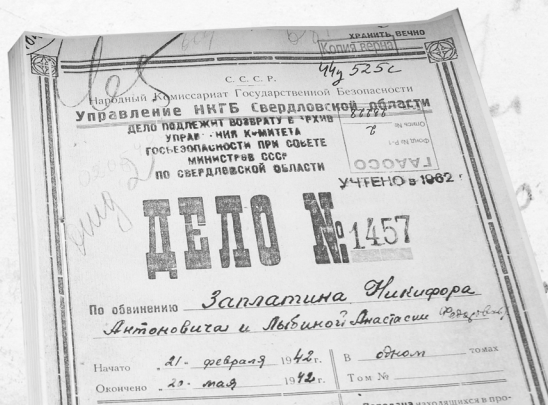 ХРАНИТЬ ВЕЧНО
Копия верна
44д 525с
С. С. С. Р.
Народный Комиссариат Государственной Безопасности
Управление НКГБ Свердловской области
ДЕЛО ПОДЛЕЖИТ ВОЗВРАТУ В АРХИВ
УПРАВЛЕНИЯ КОМИТЕТА
ГОСБЕЗОПАСНОСТИ ПРИ СОВЕТЕ
МИНИСТРОВ СССР
ПО СВЕРДЛОВСКОЙ ОБЛАСТИ
ГААОСО
Фонд № Р-1
Опись № 2
УЧТЕНО в 1962 г
ДЕЛО № 1457
По обвинению Заплатина Никифора
Антоновича и Лыбиной Анастасии Федоровны
Начато "21" февраля 1942 г.
Окончено "20" мая 1942 г.
В одном томах
Том №
находящихся в про-